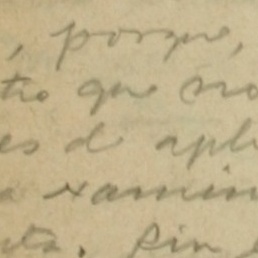 , porque,
que no
es de apl
a examin
. Sin